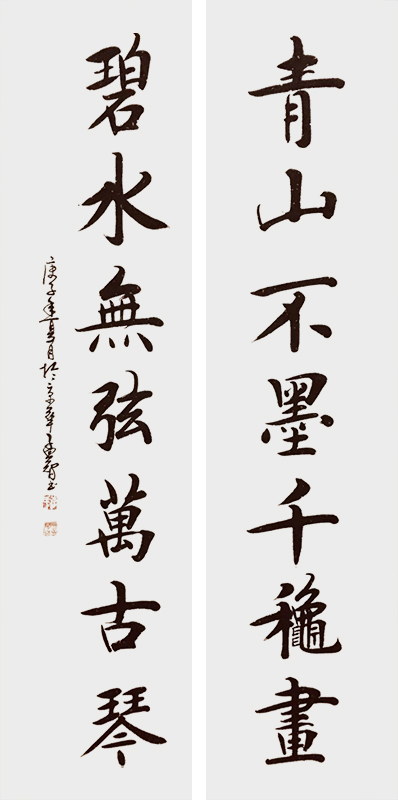 青山不墨千龝畫
碧水無弦萬古琴
庚子年夏月於京華